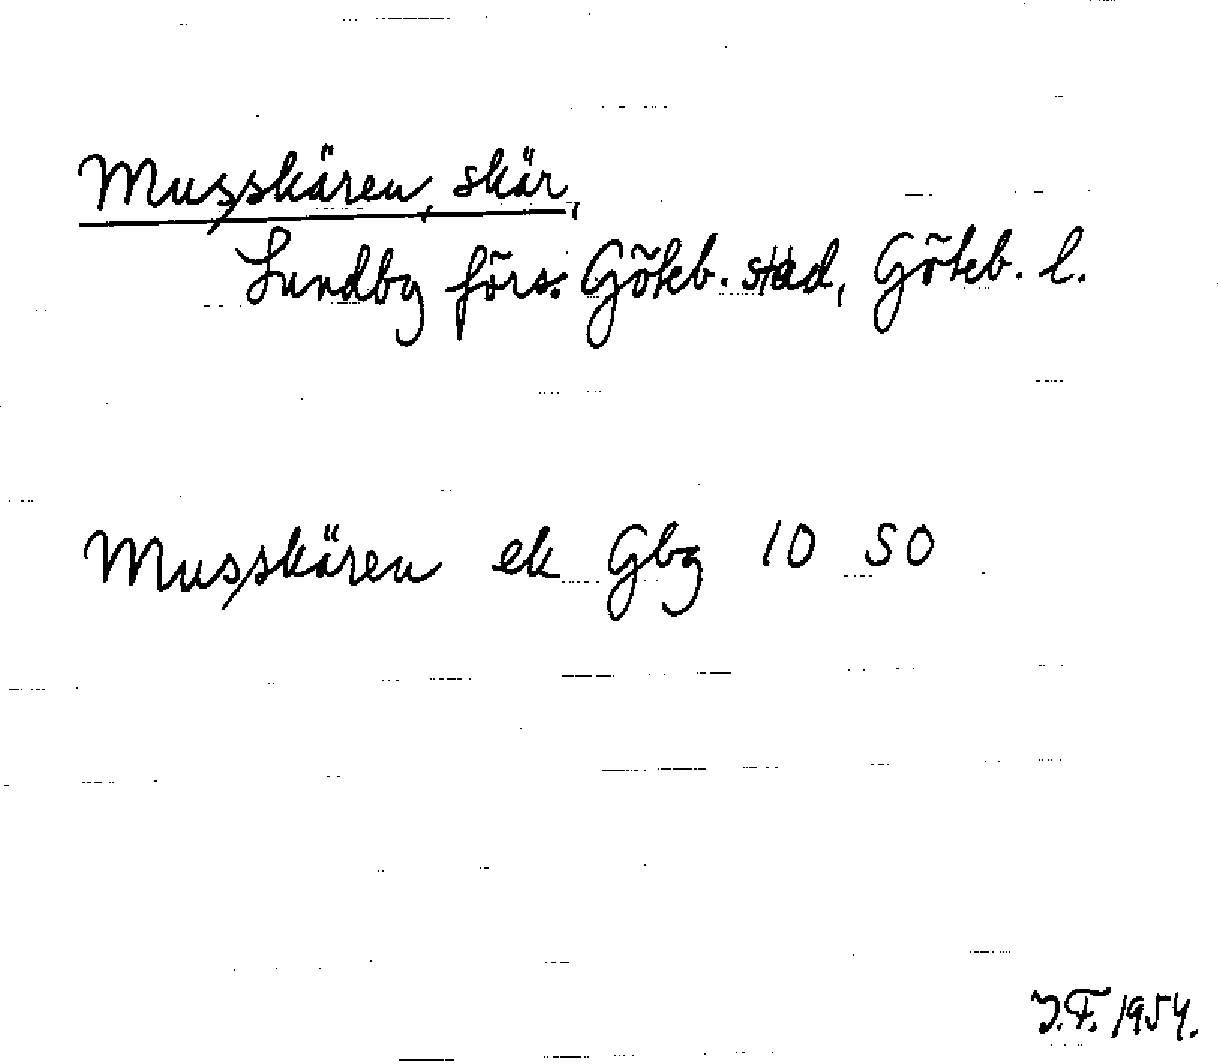 Musskären, skär,
Lundby förs. Göteb. stad, Göteb. l.
Musskären ek Gbg 10 SO
J.F. 1954.